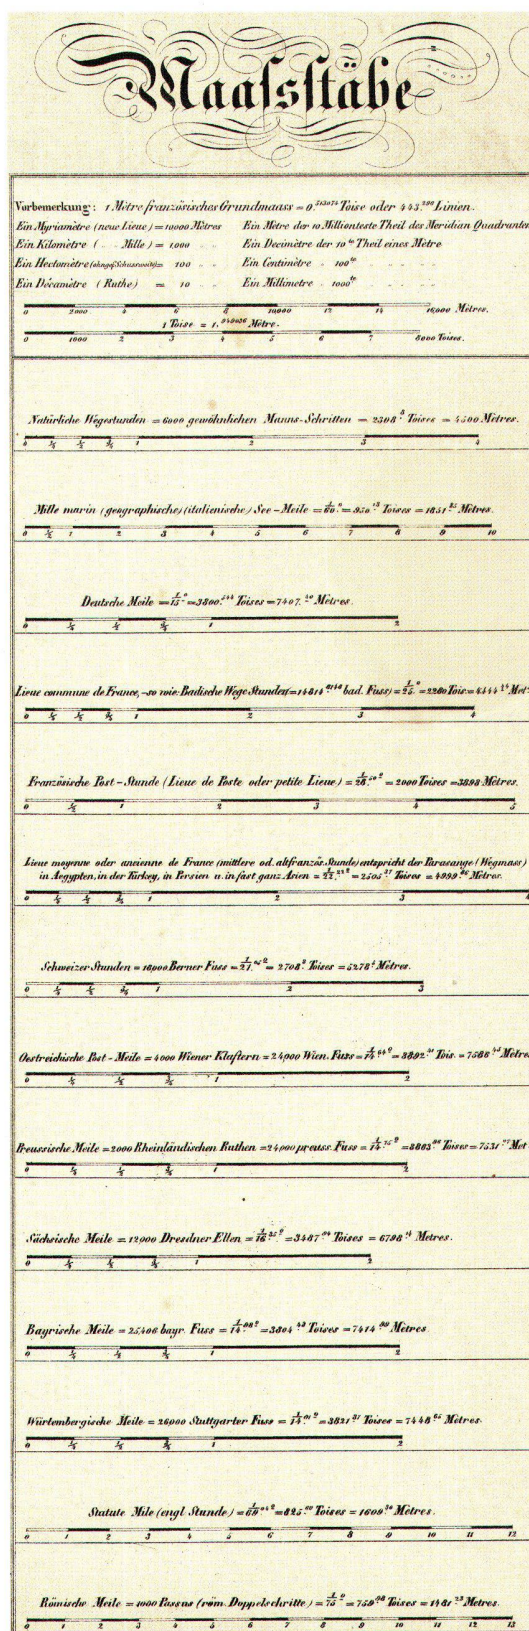 Maaſsſtäbe
Vorbemerkung: 1 Mètre französisches Grundmaass = 0,513074 Toise oder 443,296 Linien.
Ein Myriamètre (neue Lieue) = 10000 Mètres Ein Mètre der 10 Millionteste Theil des Meridian Quadranten
Ein Kilomètre ( " Mille) = 1,000 " " Ein Decimètre der 10te Theil eines Mètre
Ein Hectomètre (ohngef. Schussweite) = 100 " " Ein Centimètre " 100te "
Ein Décamètre (Ruthe) = 10 " " Ein Millimetre " 1000te "
0 2000 4 6 8 10,000 12 14 16,000 Mètres.
1 Toise = 1,949036 Mètre.
0 1000 2 3 4 5 6 7 8000 Toises.
Natürliche Wegestunden = 6000 gewöhnlichen Manns-Schritten = 2308,8 Toises = 4500 Mètres.
0 ¼ ½ ¾ 1 2 3 4
Mille marin (geographische) (italienische) See-Meile = 1/60.° = 950,13 Toises = 1851,85 Mètres.
0 ½ 1 2 3 4 5 6 7 8 9 10
Deutsche Meile = 1/15.° = 3800,544 Toises = 7407,40 Mètres.
0 ¼ ½ ¾ 1 2
Lieue commune de France, -so wie: Badische Wege Stunden (= 14814,8148 bad. Fuss) = 1/25.° = 2280 Tois. = 4444,44 Met.
0 ¼ ½ ¾ 1 2 3 4
Französische Post-Stunde (Lieue de Poste oder petite Lieue) = 1/28,50° = 2000 Toises = 3898 Mètres.
0 ½ 1 2 3 4 5
Lieue moyenne oder ancienne de France (mittlere od. altfranzös. Stunde) entspricht der Parasange (Wegmass)
in Aegypten, in der Türkey, in Persien u. in fast ganz Asien = 1/22,22° = 2505,27 Toises = 4999,96 Mètres.
0 ¼ ½ ¾ 1 2 3 4
Schweizer Stunden = 18,000 Berner Fuss = 1/21,05° = 2708,2 Toises = 5278,4 Mètres.
0 ¼ ½ ¾ 1 2 3
Oestreichische Post-Meile = 4000 Wiener Klaftern = 24,000 Wien. Fuss = 1/14,64° = 3892,31 Tois. = 7586,45 Mètres
0 ¼ ½ ¾ 1 2
Preussische Meile = 2000 Rheinländischen Ruthen = 24,000 preuss. Fuss = 1/14,75° = 3863,96 Toises = 7531,07 Met
0 ¼ ½ ¾ 1 2
Sächsische Meile = 12,000 Dresdner Ellen = 1/16,35° = 3487,94 Toises = 6798,14 Metres.
0 ¼ ½ ¾ 1 2
Bayrische Meile = 25,406 bayr. Fuss = 1/14,98° = 3804,48 Toises = 7414,99 Mètres
0 ¼ ½ ¾ 1 2
Würtembergische Meile = 26,000 Stuttgarter Fuss = 1/14,91° = 3821,81 Toises = 7448,65 Mètres.
0 ¼ ½ ¾ 1 2
Statute Mile (engl Stunde) = 1/69,04° = 825,80 Toises = 1609,30 Mètres.
0 1 2 3 4 5 6 7 8 9 10 11 12
Römische Meile = 1000 Passus (röm. Doppelschritte) = 1/75.° = 759,98 Toises = 1481,23 Metres.
0 1 2 3 4 5 6 7 8 9 10 11 12 13